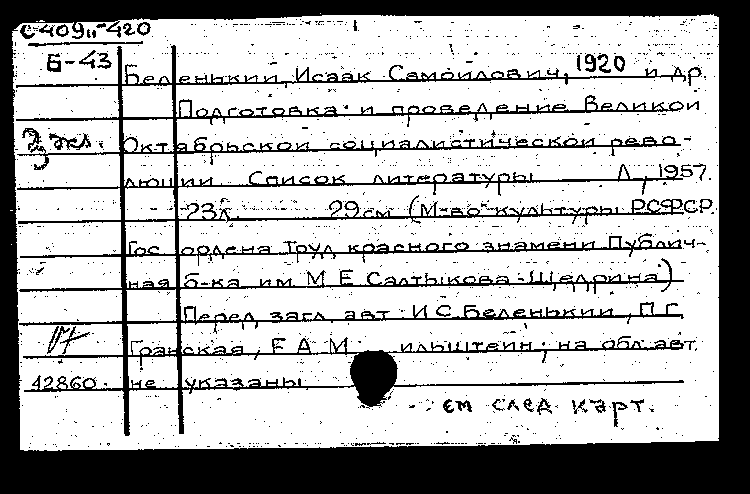 С409и-420
Б-43
Беленький, Исаак Самойлович, 1920 и др.
Подготовка и проведение Великой
3 экз. Октябрьской социалистической рево-
люции Список литературы Л, 1957.
23л. 29см (М-во культуры РСФСР.
Гос ордена Труд красного знамени Публич-
ная б-ка им М Е Салтыкова-Щедрина)
Перед загл авт И С Беленький, П Г.
Гранская, Е А М ильштейн; на обл авт.
42860. не указаны
см след карт.